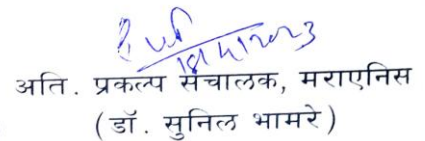 अति. प्रकल्प संचालक, मराएनिस
(डॉ. सुनिल भामरे)